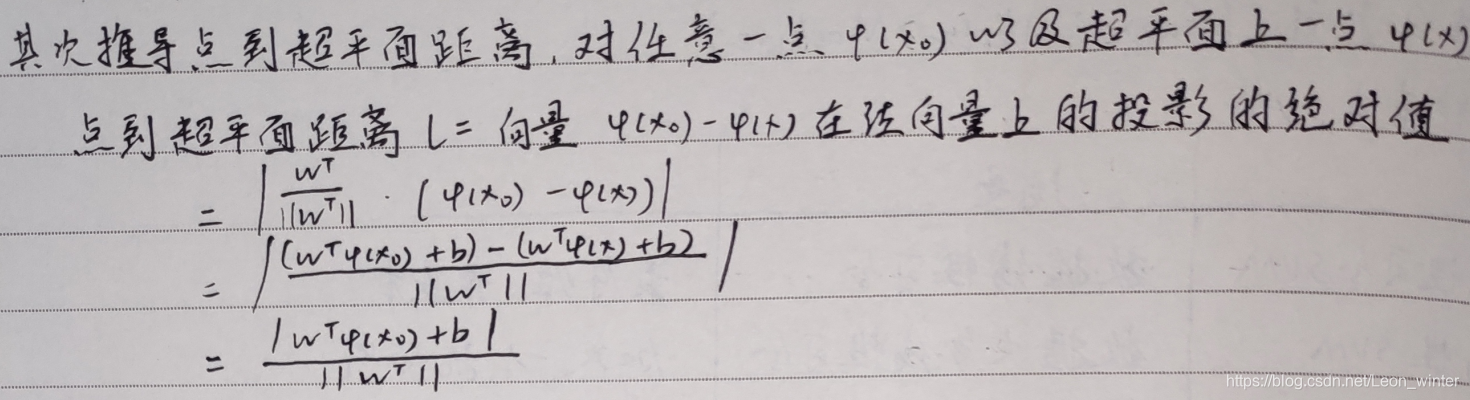 其次推导点到超平面距离,对任意一点 φ(x₀) 以及超平面上一点 φ(x)
点到超平面距离 l = 向量 φ(x₀)-φ(x) 在法向量上的投影的绝对值
= | w^T / ||w^T|| · (φ(x₀) - φ(x)) |
= | ((w^Tφ(x₀) + b) - (w^Tφ(x) + b)) / ||w^T|| |
= |w^Tφ(x₀) + b| / ||w^T||
https://blog.csdn.net/Leon_winter